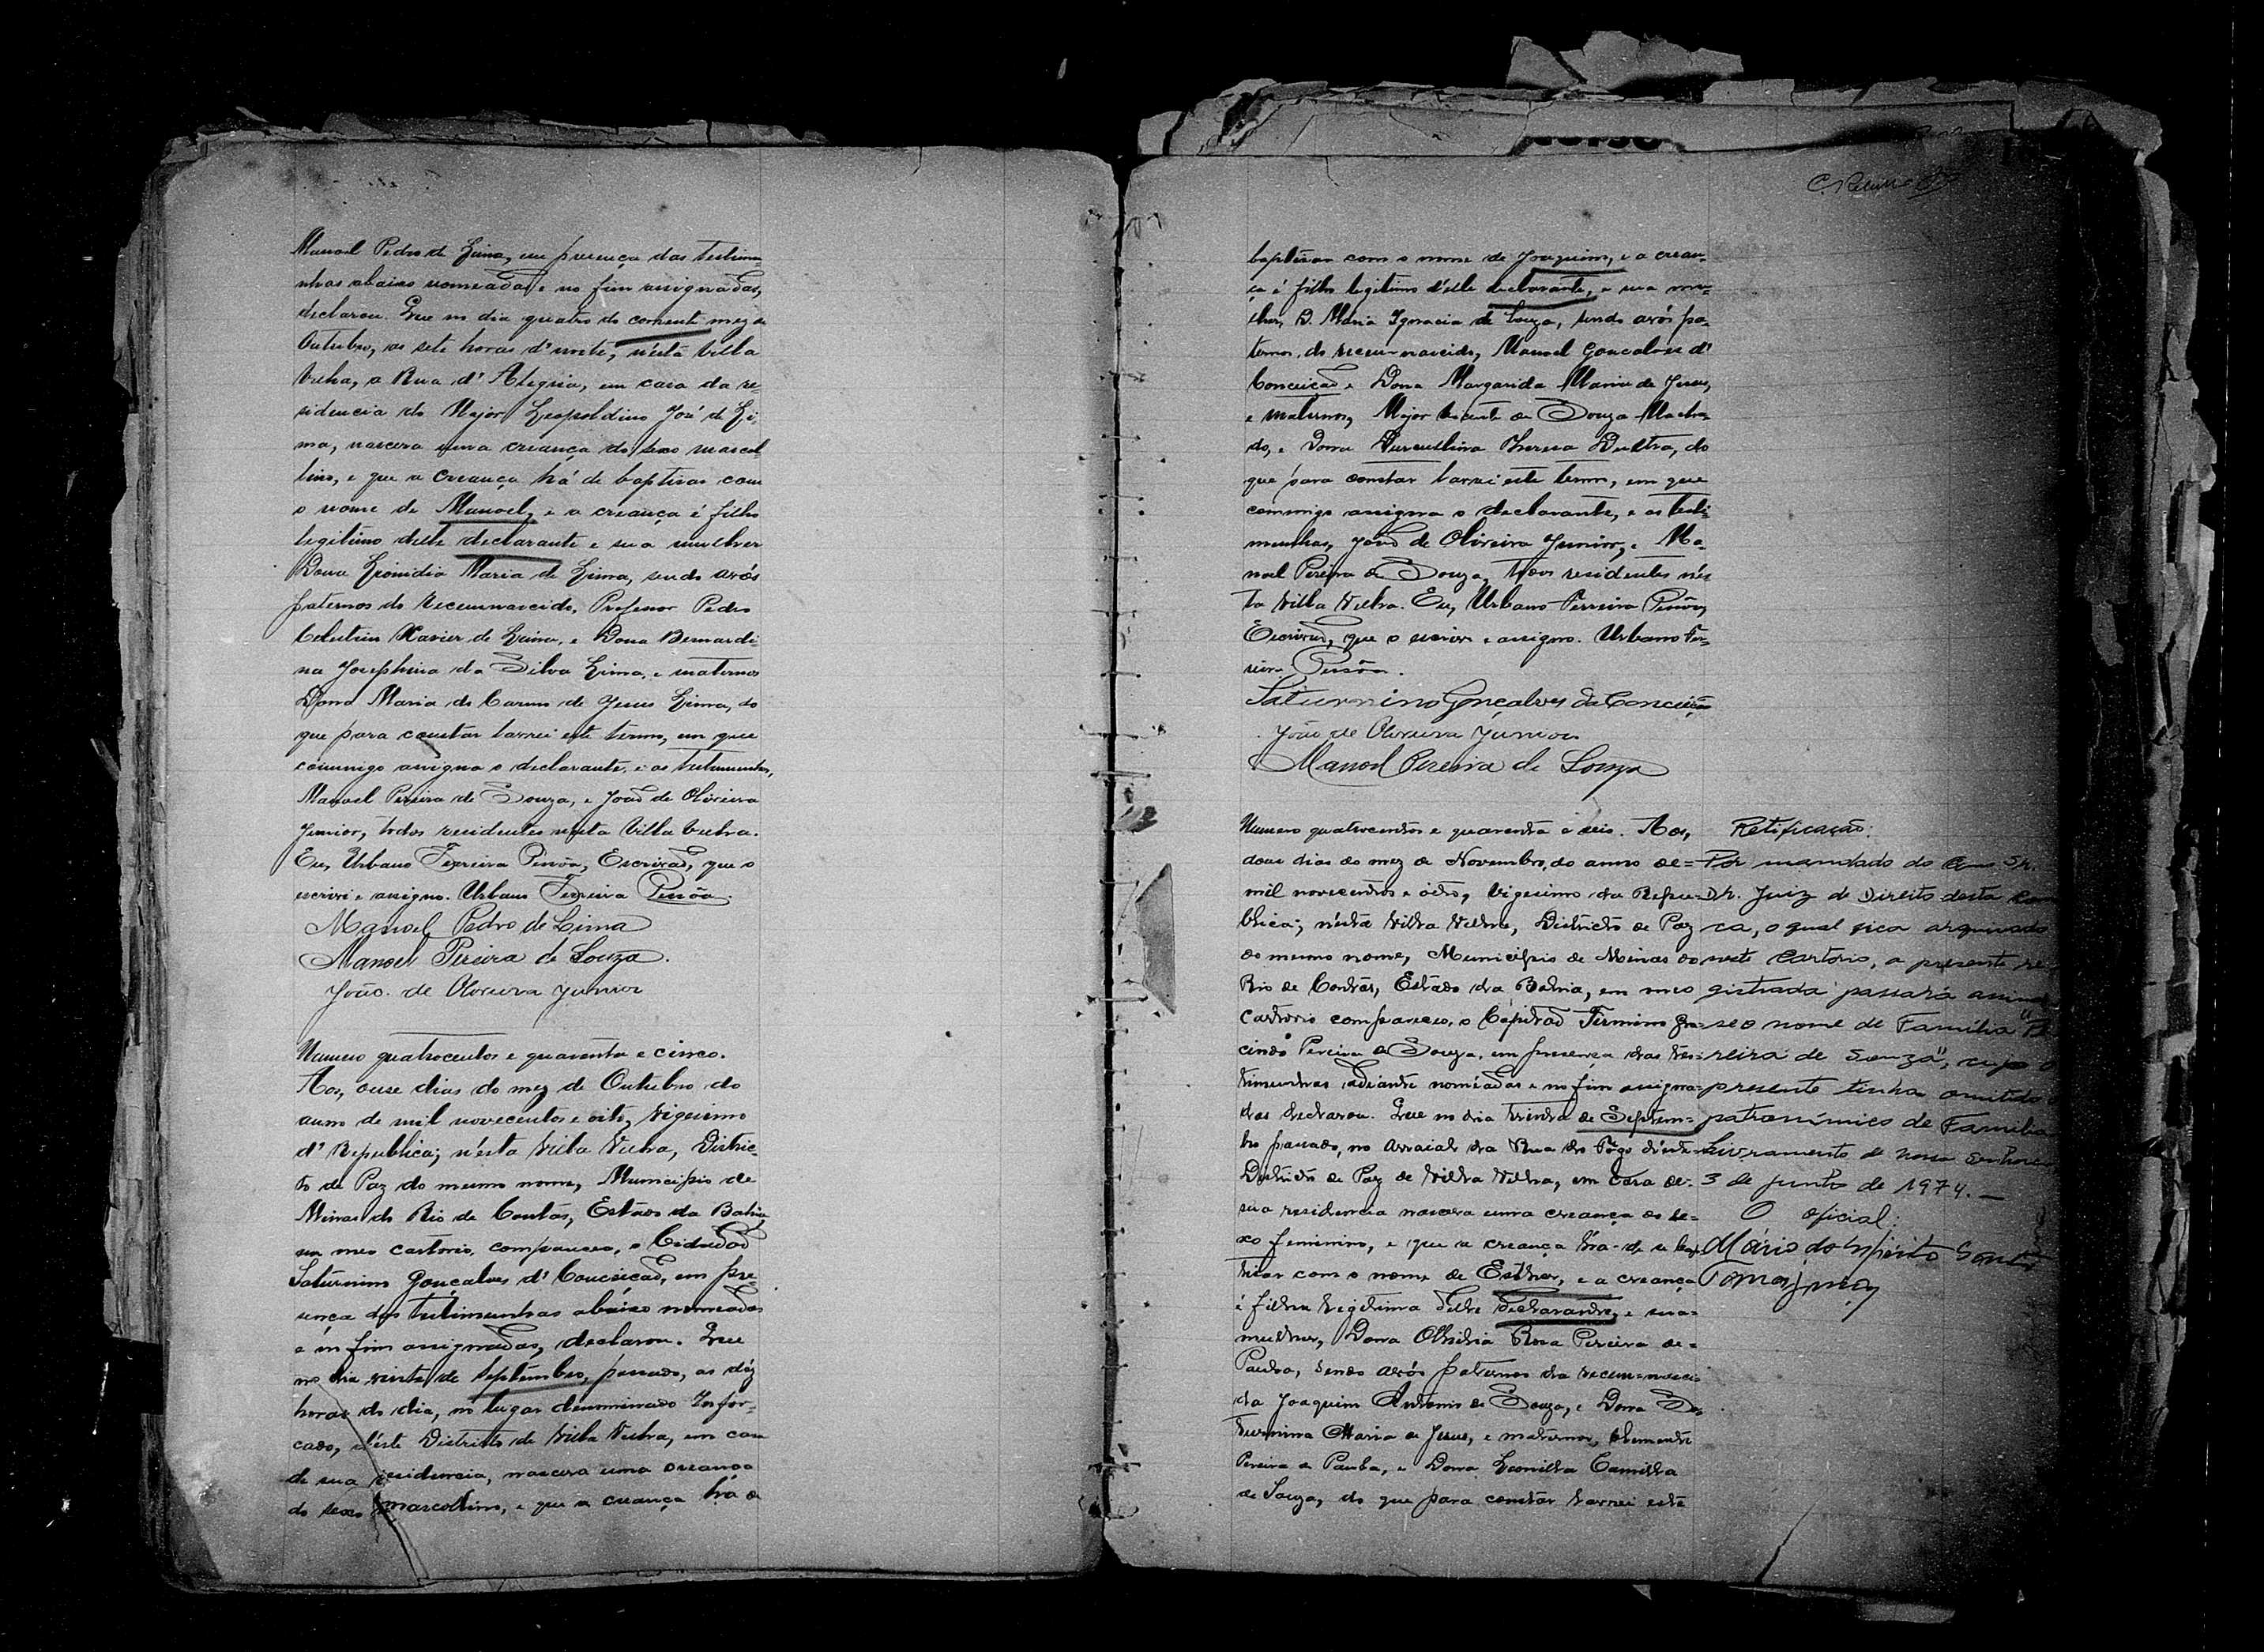 Manoel Pedro de Lima, em presença das testimu
nhas abaixo nomeadas e no fim assignadas,
declarou. Que no dia quatro do corrente mez de
Outubro, as sete horas d'noite, n'ésta Villa
Velha, a Rua d'Alegria, em casa da re-
sidencia do Major Leopoldino José de Li-
ma, nascera uma creança do sexo mascul
lino, e que a creança há de baptisar com
o nome de Manoel, e a creança é filho
legitimo deste declarante e sua mulher
Dona Leonidia Maria de Lima, sendo avós
paternos do recemnascido, Professor Pedro
Celestino Xavier de Lima, e Dona Bernardi-
na Josephina da Silva Lima, e maternos
Dona Maria do Carmo de Jesus Lima, do
que para constar lavrei este termo, em que
commigo assigna o declarante, e as testemunhas,
Manoel Pereira de Souza, e João de Oliveira
Junior, todos residentes nesta Villa Velha.
Eu, Urbano Ferreira Pessôa, Escrivaõ, que o
escrivi e assigno. Urbano Ferreira Pessôa.
Manoel Pedro de Lima
Manoel Pereira de Souza.
João de Oliveira Junior
Numero quatrocentos e quarenta e cinco.
Aos, onse dias do mez de Outubro do
anno de mil novecentos e oito, vigesimo
d'Republica; n'ésta Villa Velha, Distric-
to de Paz do mesmo nome, Municipio de
Minas do Rio de Contas, Estado da Bahia
em meo cartorio, compareceo, o Cidadaõ
Saturnino Gonçalves d'Conceiçaõ, em pre-
sença das testimunhas abaixo nomeadas
e no fim assignadas, declarou. Que
no dia vinte de Septembro, passado, as déz
horas do dia, no lugar denominado Infor-
cado, d'éste Districto de Villa Velha, em casa
de sua residencia, nascera uma creança
do sexo mascollino, e que a creança há de
baptisar com o nome de Joaquim, e a crean-
ça é filho legitimo d'elle declarante, e sua mu-
lher, D. Maria Ignacia de Souza, sendo avós pa-
ternos, do recem-nascido, Manoel Goncalves d'
Conceicaõ e Dona Margarida Maria de Jesus,
e maternos, Major Vicente de Souza Macha-
do, e Dona Theresa Dultra, do
que para constar lavrei este termo, em que
commigo assigna o declarante, e as testi-
munhas, João de Oliveira Junior, e Ma-
noel Pereira de Souza, todos residentes nés-
ta Villa Velha. Eu, Urbano Ferreira Pessôa,
Escrivaõ, que o escrivi e assigno. Urbano Fer-
reira Pessôa.
Saturnino Gonçalves da Conceição
João de Oliveira Junior
Manoel Pereira de Souza
Numero quatrocentos e quarenta e seis. Aos,
dous dias do mez de Novembro, do anno de=
mil novecentos e oito, vigesimo da Repu-
blica; nésta Villa Velha, Districto de Paz
do mesmo nome, Municipio de Minas do
Rio de Contas, Estado da Bahia, em meo
cartorio compareceo, o Capitaõ Firmino Gra-
cindo Pereira de Souza, em presença das tes-
timunhas adeante nomeadas e no fim assigna-
das declarou. Que no dia trinta de Septem-
bro passado, no Arraial da Rua do Fôgo d'éste
Districto de Paz de Villa Velha, em casa de-
sua residencia nascera uma creança do se-
xo feminino, e que a creança há-de se bap-
tisar com o nome de Esther, e a creança
é filha legitima delle declarante, e sua=
mulher, Dona Rosa Pereira de=
Paula, sendo avós paternos da recem=nasci-
da Joaquim Antonio de Souza, e Dona Sa-
turnina Maria de Jesus, e maternos, Clemente
Pereira de Paula, e Dona Leonilla Camilla
de Souza, do que para constar lavrei este
Retificação:
Por mandado do Sr.
Dr. Juiz de Direito desta
ca, o qual fica arquivado
neste Cartório, a presente re-
gistrada passará
se o nome de Familia
reira de Souza", cujo
presente tinha omitido
patronímico de Familia
Livramento de Nossa Senhora
3 de junho de 1974. —
O oficial:
Mário do Espírito Santo